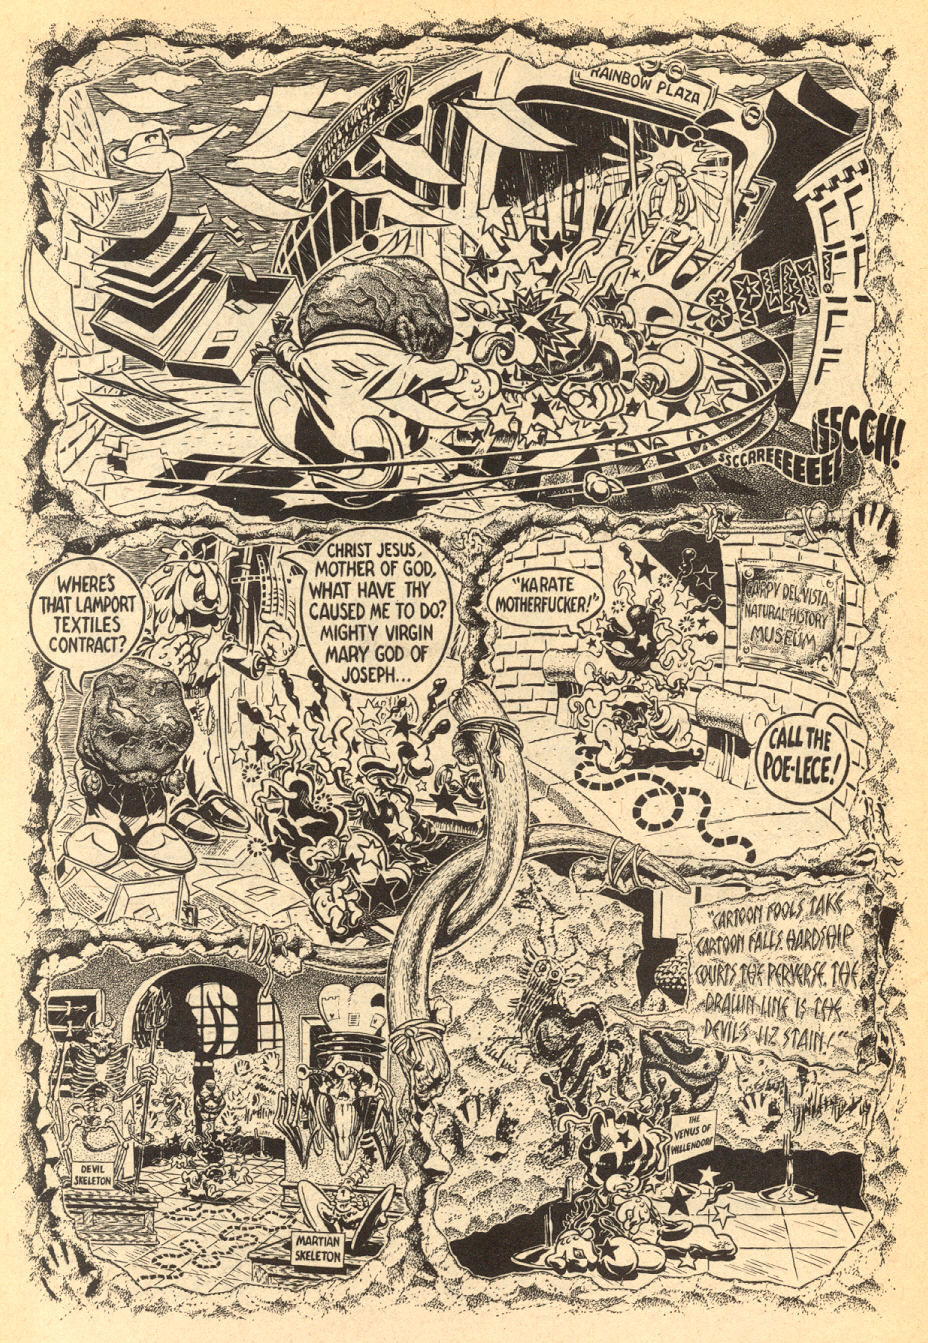 RAINBOW PLAZA
SPLAM
SSCCAREEEEEE!
SSCCH!
WHERE'S
THAT LAMPORT
TEXTILES
CONTRACT?
CHRIST JESUS,
MOTHER OF GOD,
WHAT HAVE THY
CAUSED ME TO DO?
MIGHTY VIRGIN
MARY GOD OF
JOSEPH...
"KARATE
MOTHERFUCKER!"
GAPPY DEL VISTA
NATURAL HISTORY
MUSEUM
CALL THE
POE-LECE!
DEVIL
SKELETON
MARTIAN
SKELETON
"CARTOON FOOLS TAKE
CARTOON FALLS HARDSHIP
COURTS THE PERVERSE. THE
DRAWN LINE IS THE
DEVIL'S JIZ STAIN!"
THE
VENUS OF
WILLENDORF